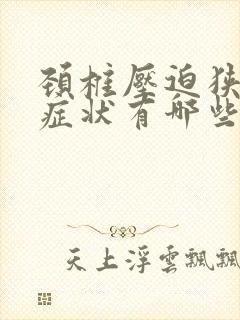 頚椎壓迫狹
症状有哪些
天上浮雲飄飄